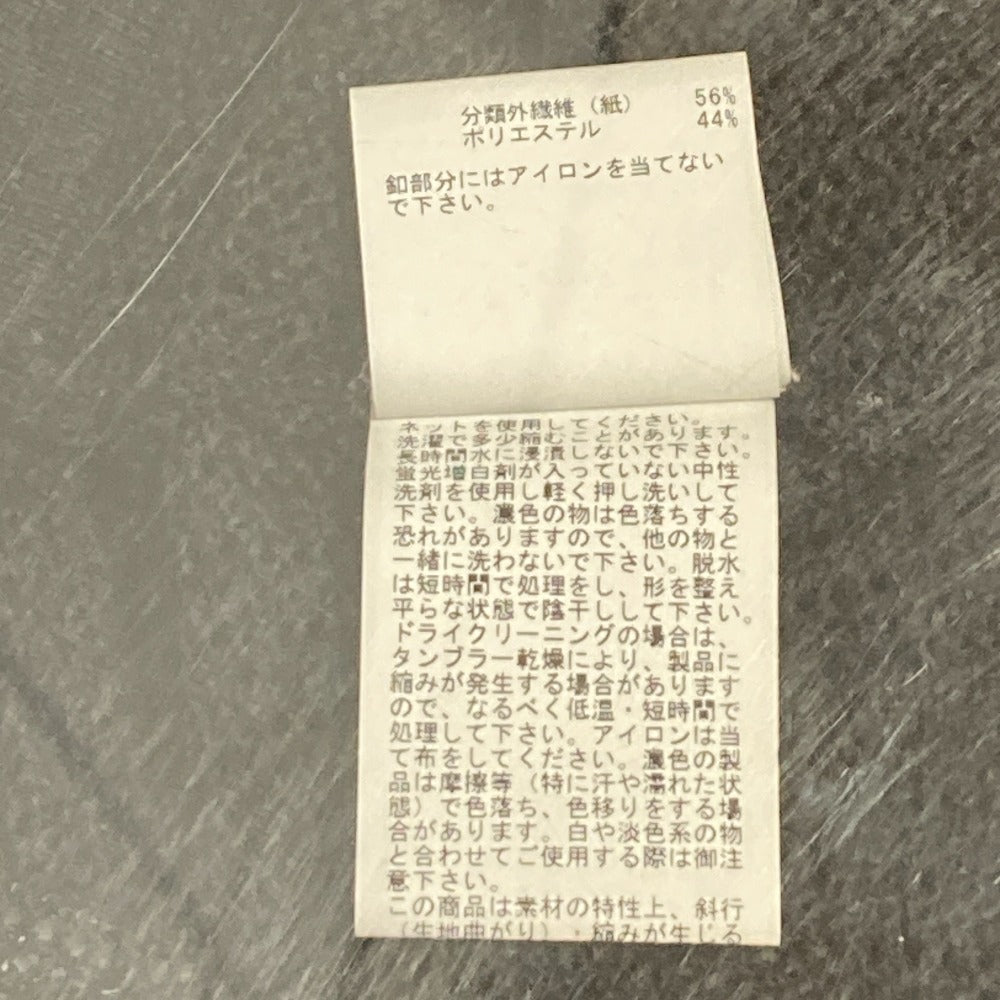 分類外繊維（紙） 56%
ポリエステル 44%
釦部分にはアイロンを当てない
で下さい。
ネットを使用してください。
洗濯で多少縮むことがあります。
長時間水に浸漬しないで下さい。
蛍光増白剤が入っていない中性
洗剤を使用し軽く押し洗いして
下さい。濃色の物は色落ちする
恐れがありますので、他の物と
一緒に洗わないで下さい。脱水
は短時間で処理をし、形を整え
平らな状態で陰干しして下さい。
ドライクリーニングの場合は、
タンブラー乾燥により、製品に
縮みが発生する場合があります
ので、なるべく低温・短時間で
処理して下さい。アイロンは当
て布をしてください。濃色の製
品は摩擦等（特に汗や濡れた状
態）で色落ち、色移りをする場
合があります。白や淡色系の物
と合わせてご使用する際は御注
意下さい。
この商品は素材の特性上、斜行
（生地曲がり）・縮みが生じる